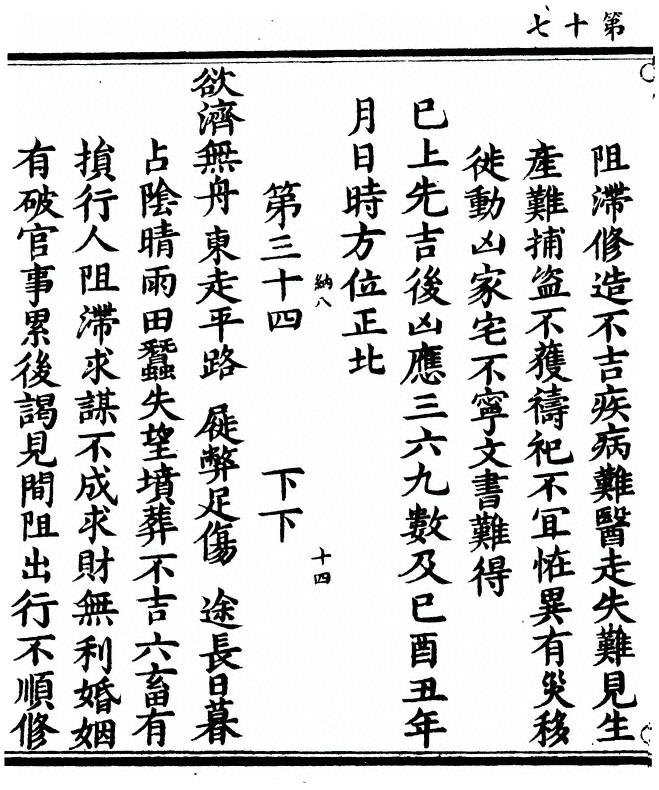 第十七
阻滯修造不吉疾病難醫走失難見生
產難捕盜不獲禱祀不冝恠異有災移
徙動凶家宅不寧文書難得
巳上先吉後凶應三六九數及巳酉丑年
月日時方位正北
納八
十四
第三十四 下下
欲濟無舟東走平路 屣弊足傷 途長日暮
占陰晴雨田蠶失望墳葬不吉六畜有
損行人阻滯求謀不成求財無利婚姻
有破官事累後謁見間阻出行不順修